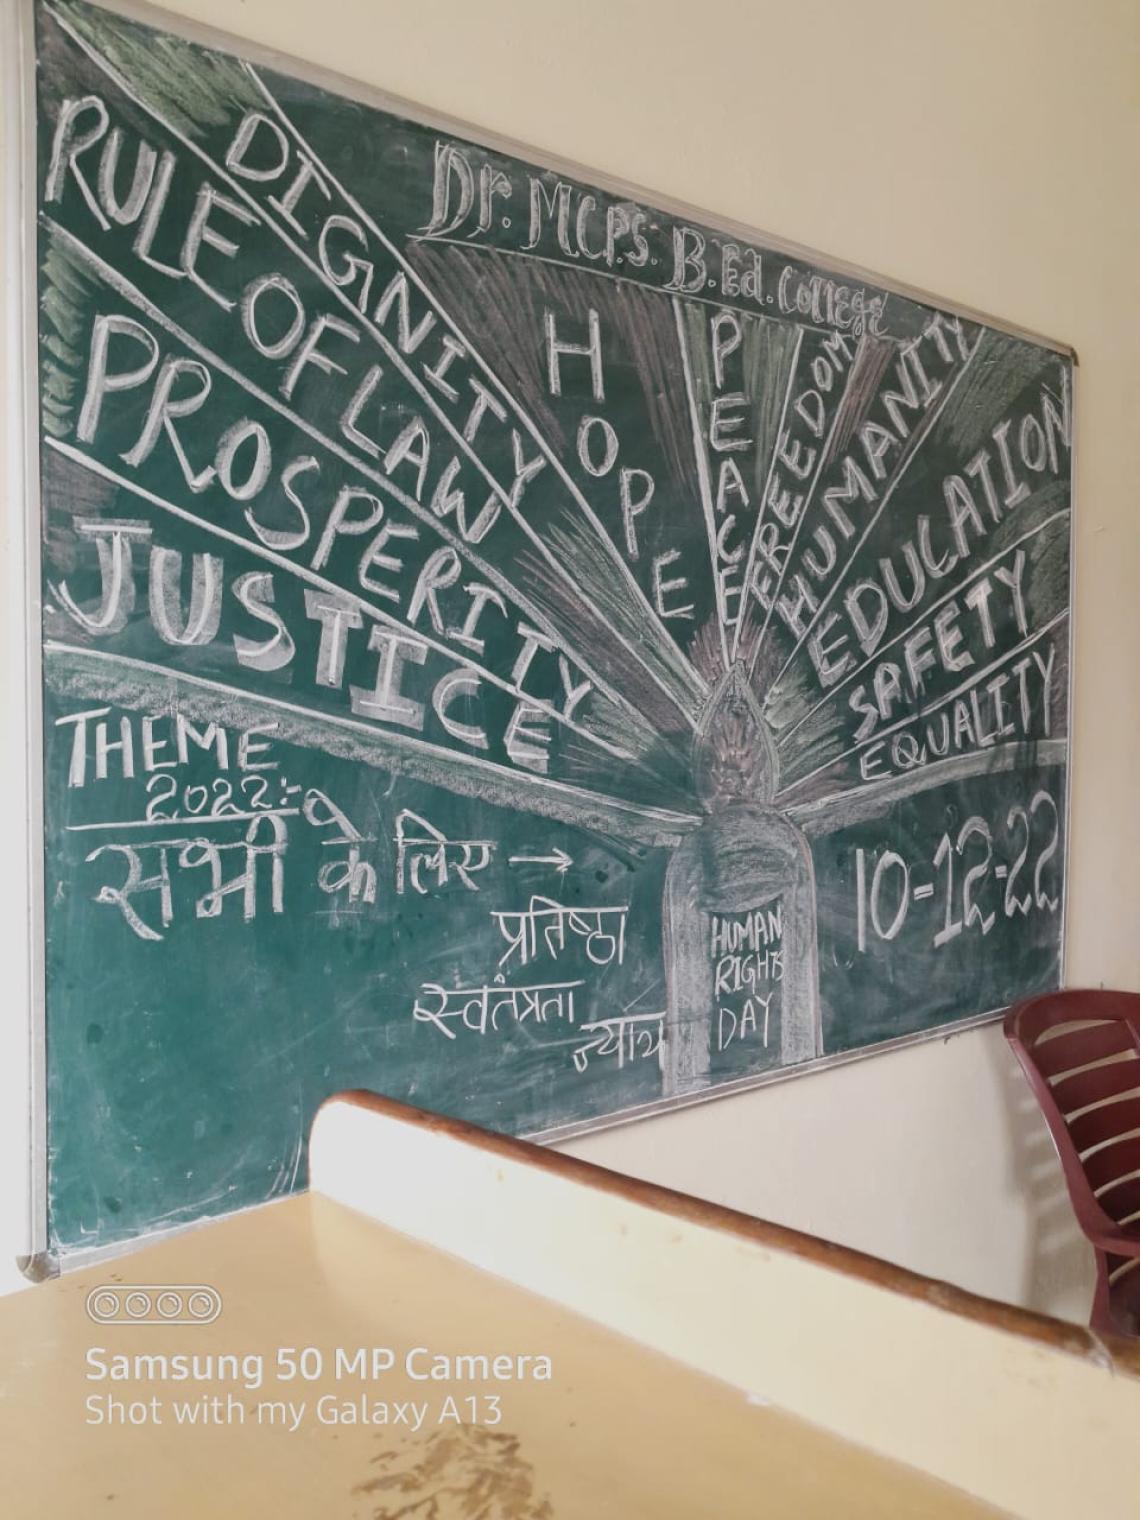 Dr. MCPS. B.Ed. College
DIGNITY
RULE OF LAW
PROSPERITY
JUSTICE
HOPE
PEACE
FREEDOM
HUMANITY
EDUCATION
SAFETY
EQUALITY
THEME
2022:-
सभी के लिए →
प्रतिष्ठा
स्वतंत्रता
न्याय
HUMAN
RIGHTS
DAY
10-12-22
Samsung 50 MP Camera
Shot with my Galaxy A13